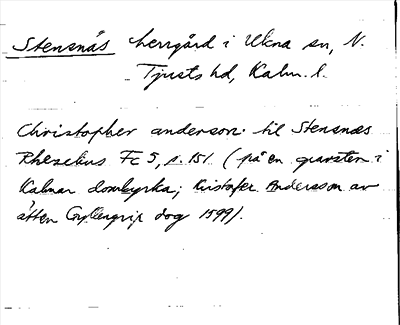 Stensnäs herrgård i Ukna sn, N.
Tjusts hd, Kalm. l.
Christopher anderson til Stensnäs
Rhezelius Fc 5, s. 151 (på en gravsten i
Kalmar domkyrka; Kristofer Andersson av
ätten Gyllengrip dog 1599).